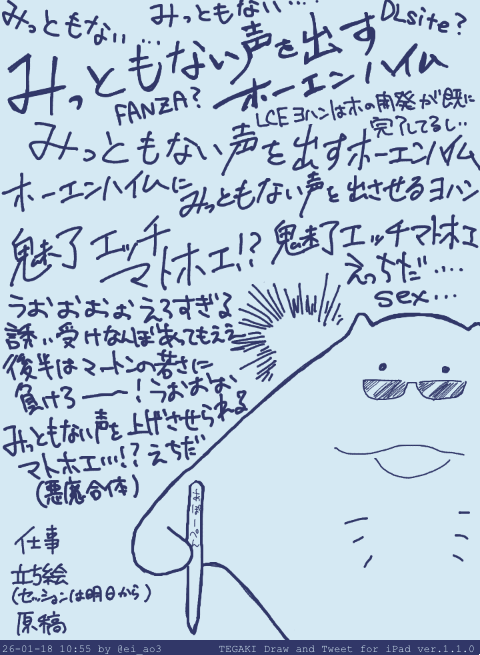 みっともない…
みっともない….
DLsite?
みっともない声を出す
FANZA?
ホーエンハイム
LCEヨハンはホの開発が既に
完了してるし..
みっともない声を出すホーエンハイム
ホーエンハイムに
みっともない声を出させるヨハン
魅了エッチ
マトホエ!?
魅了エッチマトホエ
えっちだ....
sex...
うおおおぉぉえろすぎる
誘い受けなんぼあってもええ
後半はマートンの若さに
負けろ――!うおおお
みっともない声を上げさせられる
マトホエ…!?えちだ
(悪魔合体)
仕事
立ち絵
(セッションは明日から)
原稿
26-01-18 10:55 by @ei_ao3
TEGAKI Draw and Tweet for iPad ver.1.1.0